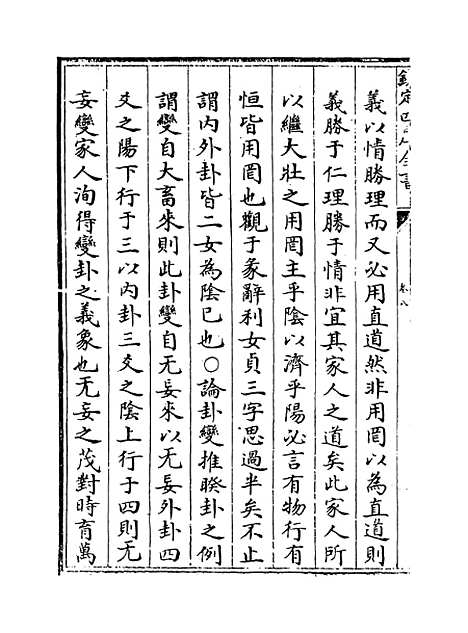 欽定四庫全書
卷八
義以情勝理而又必用直道然非用罔以為直道則
義勝于仁理勝于情非宜其家人之道矣此家人所
以繼大壯之用罔主乎陰以濟乎陽必言有物行有
恒皆用罔也觀于彖辭利女貞三字思過半矣不止
謂內外卦皆二女為陰已也○論卦變推睽卦之例
謂變自大畜來則此卦變自无妄來以无妄外卦四
爻之陽下行于三以內卦三爻之陰上行于四則无
妄變家人洵得變卦之義象也无妄之茂對時育萬